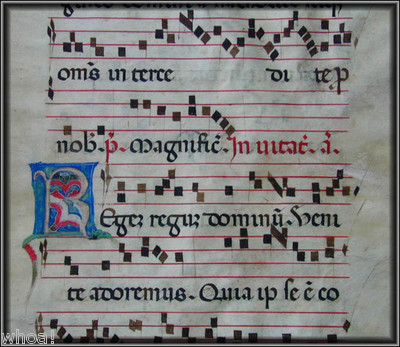 om̄s in terce di te p̄
nob̄. p̄. Magnific̄. In vitat̄. ā.
REgez reguz dominū. Veni
te adoremus. Quia ip se ē co
whoa!